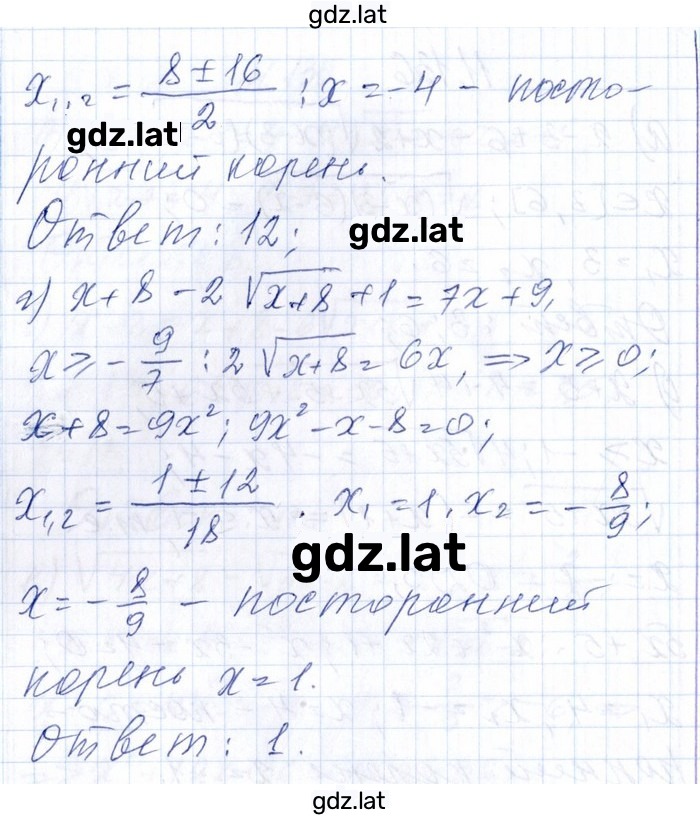 gdz.lat
x₁,₂ = (8 ± 16)/2 ; x = -4 - посто-
gdz.lat
ронний корень.
Ответ: 12;
gdz.lat
г) x + 8 - 2√(x+8) + 1 = 7x + 9,
x ≥ -9/7 : 2√(x+8) = 6x, ⇒ x ≥ 0;
x + 8 = 9x²; 9x² - x - 8 = 0;
x₁,₂ = (1 ± 12)/18 . x₁ = 1, x₂ = -8/9;
gdz.lat
x = -8/9 - посторонний
корень x = 1.
Ответ: 1.
gdz.lat